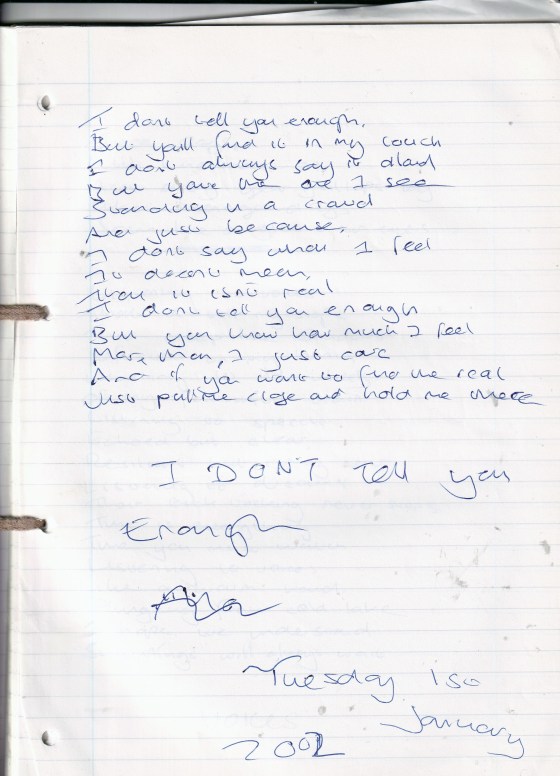 I dont tell you enough,
But youll find it in my touch
I dont always say it aloud
But youre the one I see
Standing in a crowd
And just because,
I dont say what I feel
It doesnt mean,
That it isnt real
I dont tell you enough
But you know how much I feel
More than, I just care
And if you want to find me real
Just pull me close and hold me there
I DONT Tell you
Enough
Tuesday 1st
January
2002